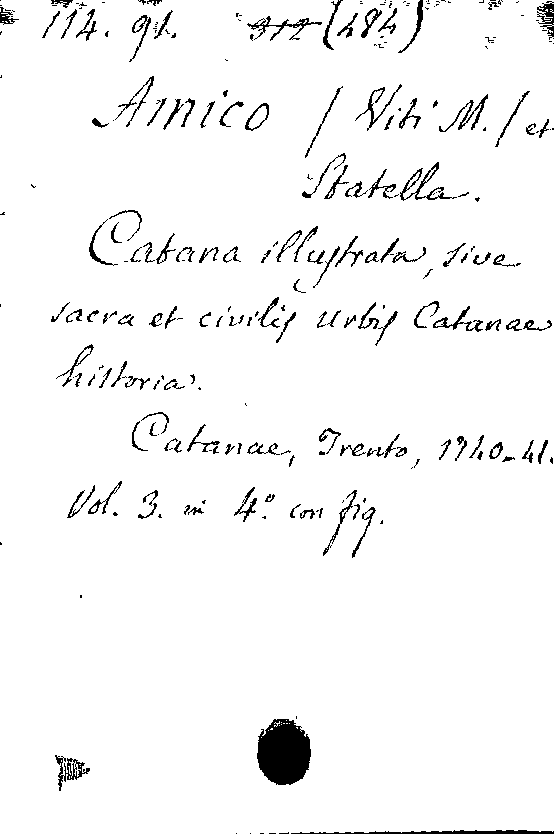 114. 91. 312 (484)
Amico / Viti M. / et
Statella.
Catana illustrata, sive
sacra et civilis urbis Catanae
historia.
Catanae, Trento, 1740-41.
Vol. 3. in 4.° con fig.